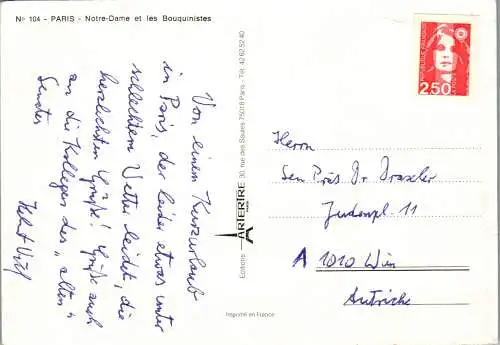 Nº 104 - PARIS - Notre-Dame et les Bouquinistes
Von einem Kurzurlaub
in Paris, der leider etwas unter
schlechtem Wetter leidet, die
herzlichsten Grüße! Grüße auch
an die Kollegen des "alten"
Senates
Editions ARTERTRE 30, rue des Saules 75018 Paris - Tél. 42 62 52 40
Imprimé en France
REPUBLIQUE FRANÇAISE
LA POSTE
2,50
Herrn
Sen Präs Dr Draxler
Judenpl. 11
A 1010 Wien
Autriche